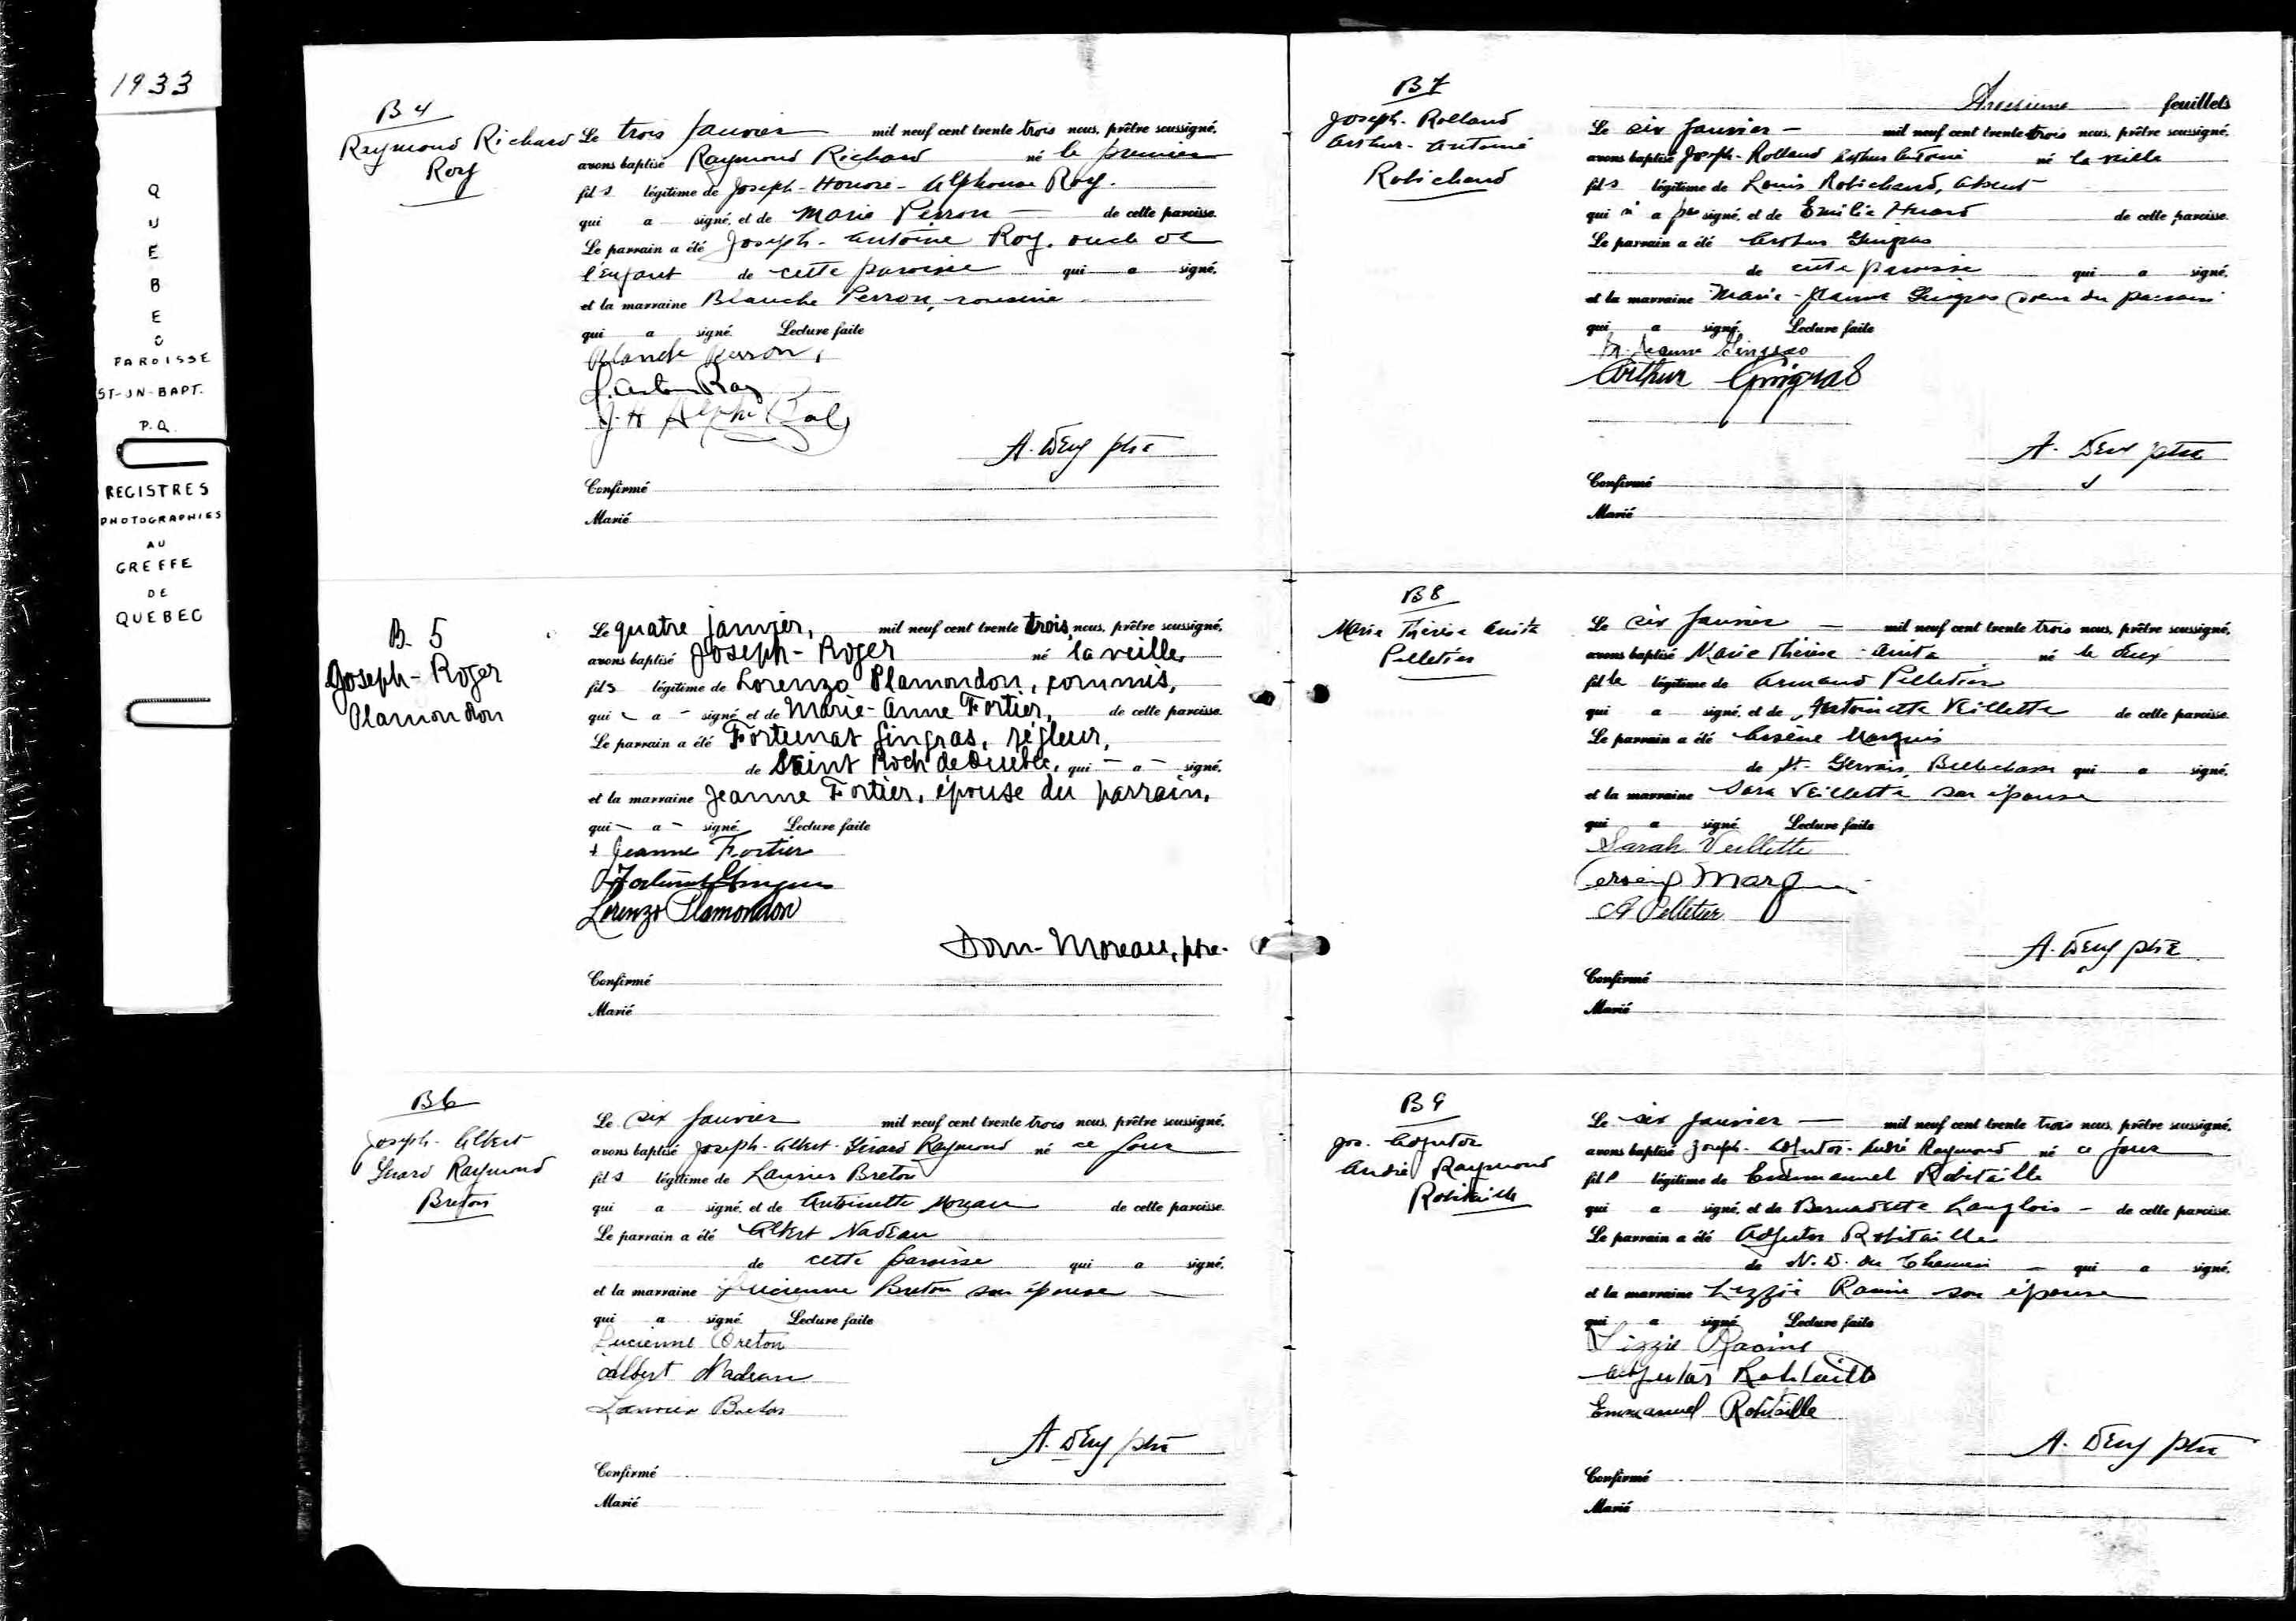 1933
QUEBEC
PAROISSE
ST-JN-BAPT.
P.Q.
REGISTRES
PHOTOGRAPHIES
AU
GREFFE
DE
QUEBEC
B 4
Raymond Richard
Roy
Le trois Janvier mil neuf cent trente trois nous, prêtre soussigné,
avons baptisé Raymond Richard né le premier
fils légitime de Joseph-Honoré-Alphonse Roy.
qui a signé, et de Marie Perron de cette paroisse.
Le parrain a été Joseph-Antoine Roy, oncle de
l'enfant de cette paroisse qui a signé,
et la marraine Blanche Perron, cousine
qui a signé. Lecture faite
Blanche Perron,
J. Antoine Roy
J. H. Alph. Roy
A. Dery ptre
Confirmé
Marié
B. 5
Joseph-Roger
Plamondon
Le quatre janvier, mil neuf cent trente trois, nous, prêtre soussigné,
avons baptisé Joseph-Roger né la veille,
fils légitime de Lorenzo Plamondon, commis,
qui - a - signé, et de Marie-Anne Fortier, de cette paroisse.
Le parrain a été Fortunat Gingras, régleur,
de Saint Roch de Québec, qui - a - signé,
et la marraine Jeanne Fortier, épouse du parrain,
qui - a - signé. Lecture faite
+ Jeanne Fortier
Fortunat Gingras
Lorenzo Plamondon
Dom. Moreau, ptre.
Confirmé
Marié
B6
Joseph-Albert
Gérard Raymond
Breton
Le six Janvier mil neuf cent trente trois nous, prêtre soussigné,
avons baptisé Joseph-Albert-Gérard Raymond né ce jour
fils légitime de Laurier Breton
qui a signé, et de Antoinette Moreau de cette paroisse.
Le parrain a été Albert Nadeau
de cette paroisse qui a signé,
et la marraine Lucienne Breton son épouse
qui a signé. Lecture faite
Lucienne Breton
Albert Nadeau
Laurier Breton
A. Dery ptre
Confirmé
Marié
B7
Joseph-Rolland
Arthur-Antoine
Robichaud
Troisieme feuillets
Le six Janvier - mil neuf cent trente trois nous, prêtre soussigné,
avons baptisé Joseph-Rolland Arthur Antoine né la veille
fils légitime de Louis Robichaud, absent
qui n'a pas signé, et de Emilie Huard de cette paroisse.
Le parrain a été Arthur Gingras
de cette paroisse qui a signé,
et la marraine Marie-Jeanne Gingras soeur du parrain
qui a signé. Lecture faite
M. Jeanne Gingras
Arthur Gingras
A. Dery ptre
Confirmé
Marié
B8
Marie Thérèse Anita
Pelletier
Le six Janvier - mil neuf cent trente trois nous, prêtre soussigné,
avons baptisé Marie Thérèse-Anita né le deux
fille légitime de Armand Pelletier
qui a signé, et de Antoinette Veillette de cette paroisse.
Le parrain a été Arsène Marquis
de St-Gervais, Bellechasse qui a signé,
et la marraine Sara Veillette son épouse
qui a signé. Lecture faite
Sarah Veillette
A Pelletier
A. Dery ptre
Confirmé
Marié
B9
Jos. Adjutor
André Raymond
Robitaille
Le six Janvier - mil neuf cent trente trois nous, prêtre soussigné,
avons baptisé Joseph-Adjutor-André Raymond né ce jour
fils légitime de Emmanuel Robitaille
qui a signé, et de Bernadette Langlois - de cette paroisse.
Le parrain a été Adjutor Robitaille
de N.D. du Chemin - qui a signé,
et la marraine Lizzie Racine son épouse
qui a signé. Lecture faite
Lizzie Racine
Adjutor Robitaille
Emmanuel Robitaille
A. Dery ptre
Confirmé
Marié